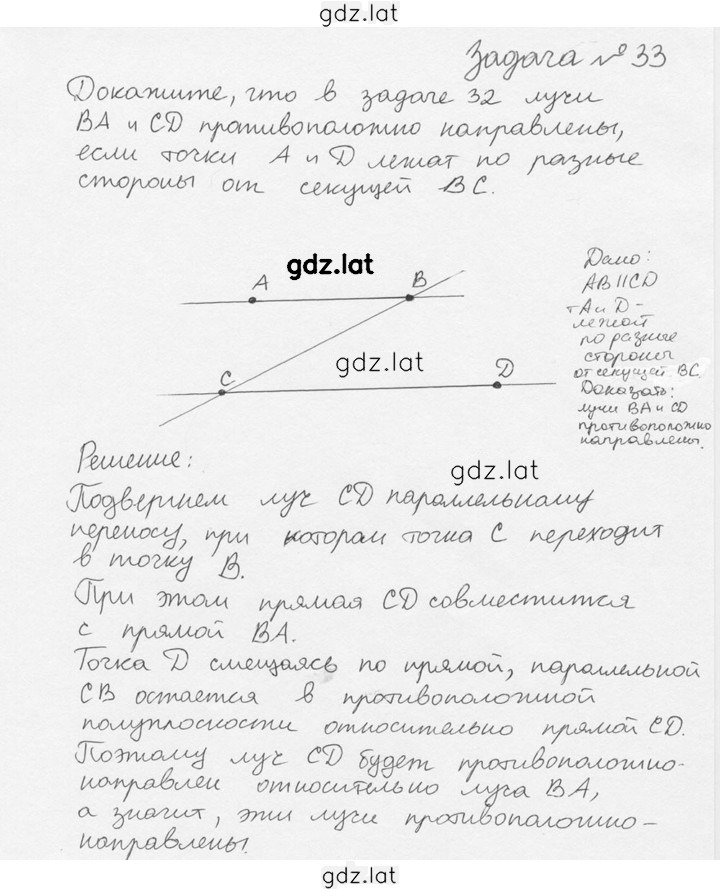 gdz.lat
Задача № 33
Докажите, что в задаче 32 лучи
BA и CD противоположно направлены,
если точки A и D лежат по разные
стороны от секущей BC.
gdz.lat
A
B
C
D
gdz.lat
Дано:
AB||CD
т.A и D -
лежат
по разные
стороны
от секущей BC
Доказать:
лучи BA и CD
противоположно
направлены.
Решение:
gdz.lat
Подвергнем луч CD параллельному
переносу, при котором точка C переходит
в точку B.
При этом прямая CD совместится
с прямой BA.
Точка D смещаясь по прямой, параллельной
CB остается в противоположной
полуплоскости относительно прямой CD.
Поэтому луч CD будет противоположно-
направлен относительно луча BA,
а значит, эти лучи противоположно-
направлены.
gdz.lat